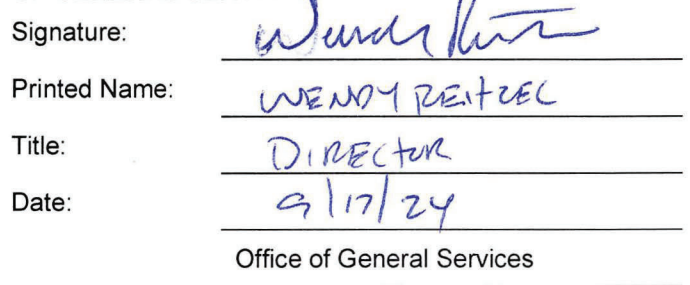 Signature: Wendy Reitzel
Printed Name: WENDY REITZEL
Title: DIRECTOR
Date: 9/17/24
Office of General Services